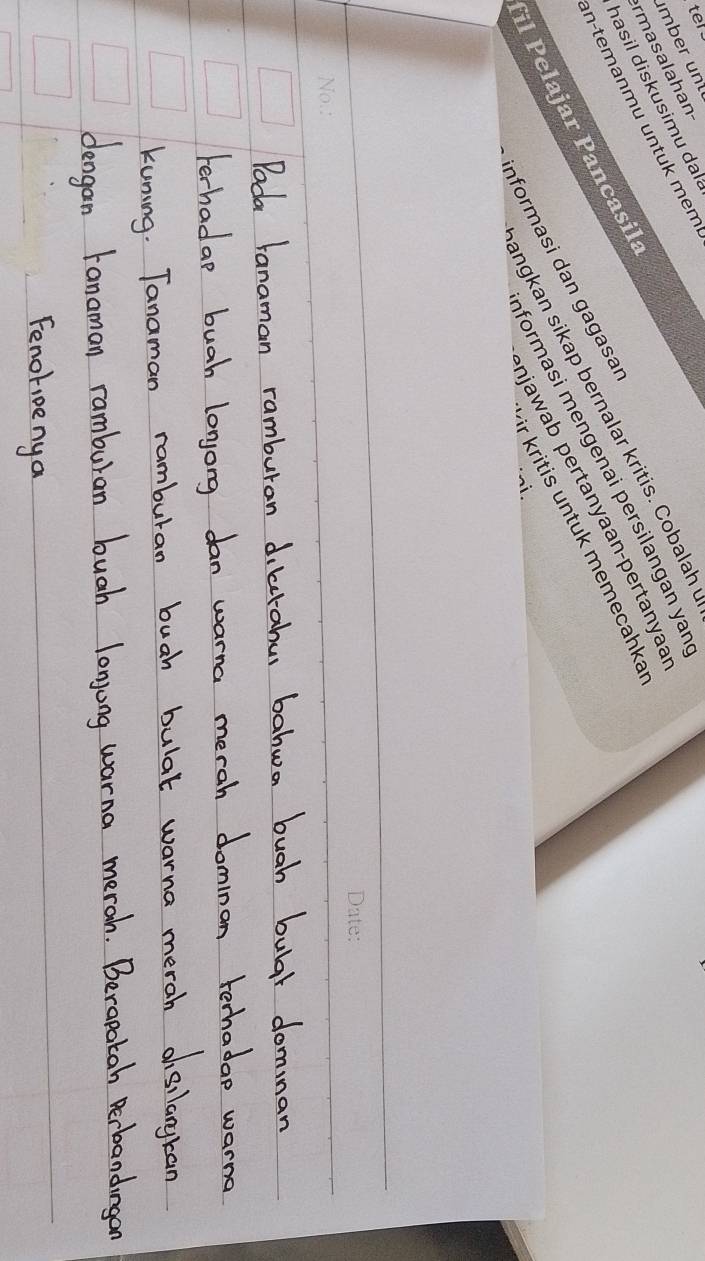 ter
umber untu
ermasalahan-
hasil diskusimu dala
an-temanmu untuk memb
fil Pelajar Pancasila
informasi dan gagasan
bangkan sikap bernalar kritis. Cobalah un
informasi mengenai persilangan yang
enjawab pertanyaan-pertanyaan
kir kritis untuk memecahkan
ini.
No.:
Date:
Pada tanaman rambutan diketahui bahwa buah bulat dominan
terhadap buah lonjong dan warna merah dominan terhadap warna
kuning. Tanaman rambutan buah bulat warna merah disilangkan
dengan tanaman rambutan buah lonjong warna merah. Berapakah perbandingan
Fenotipenya